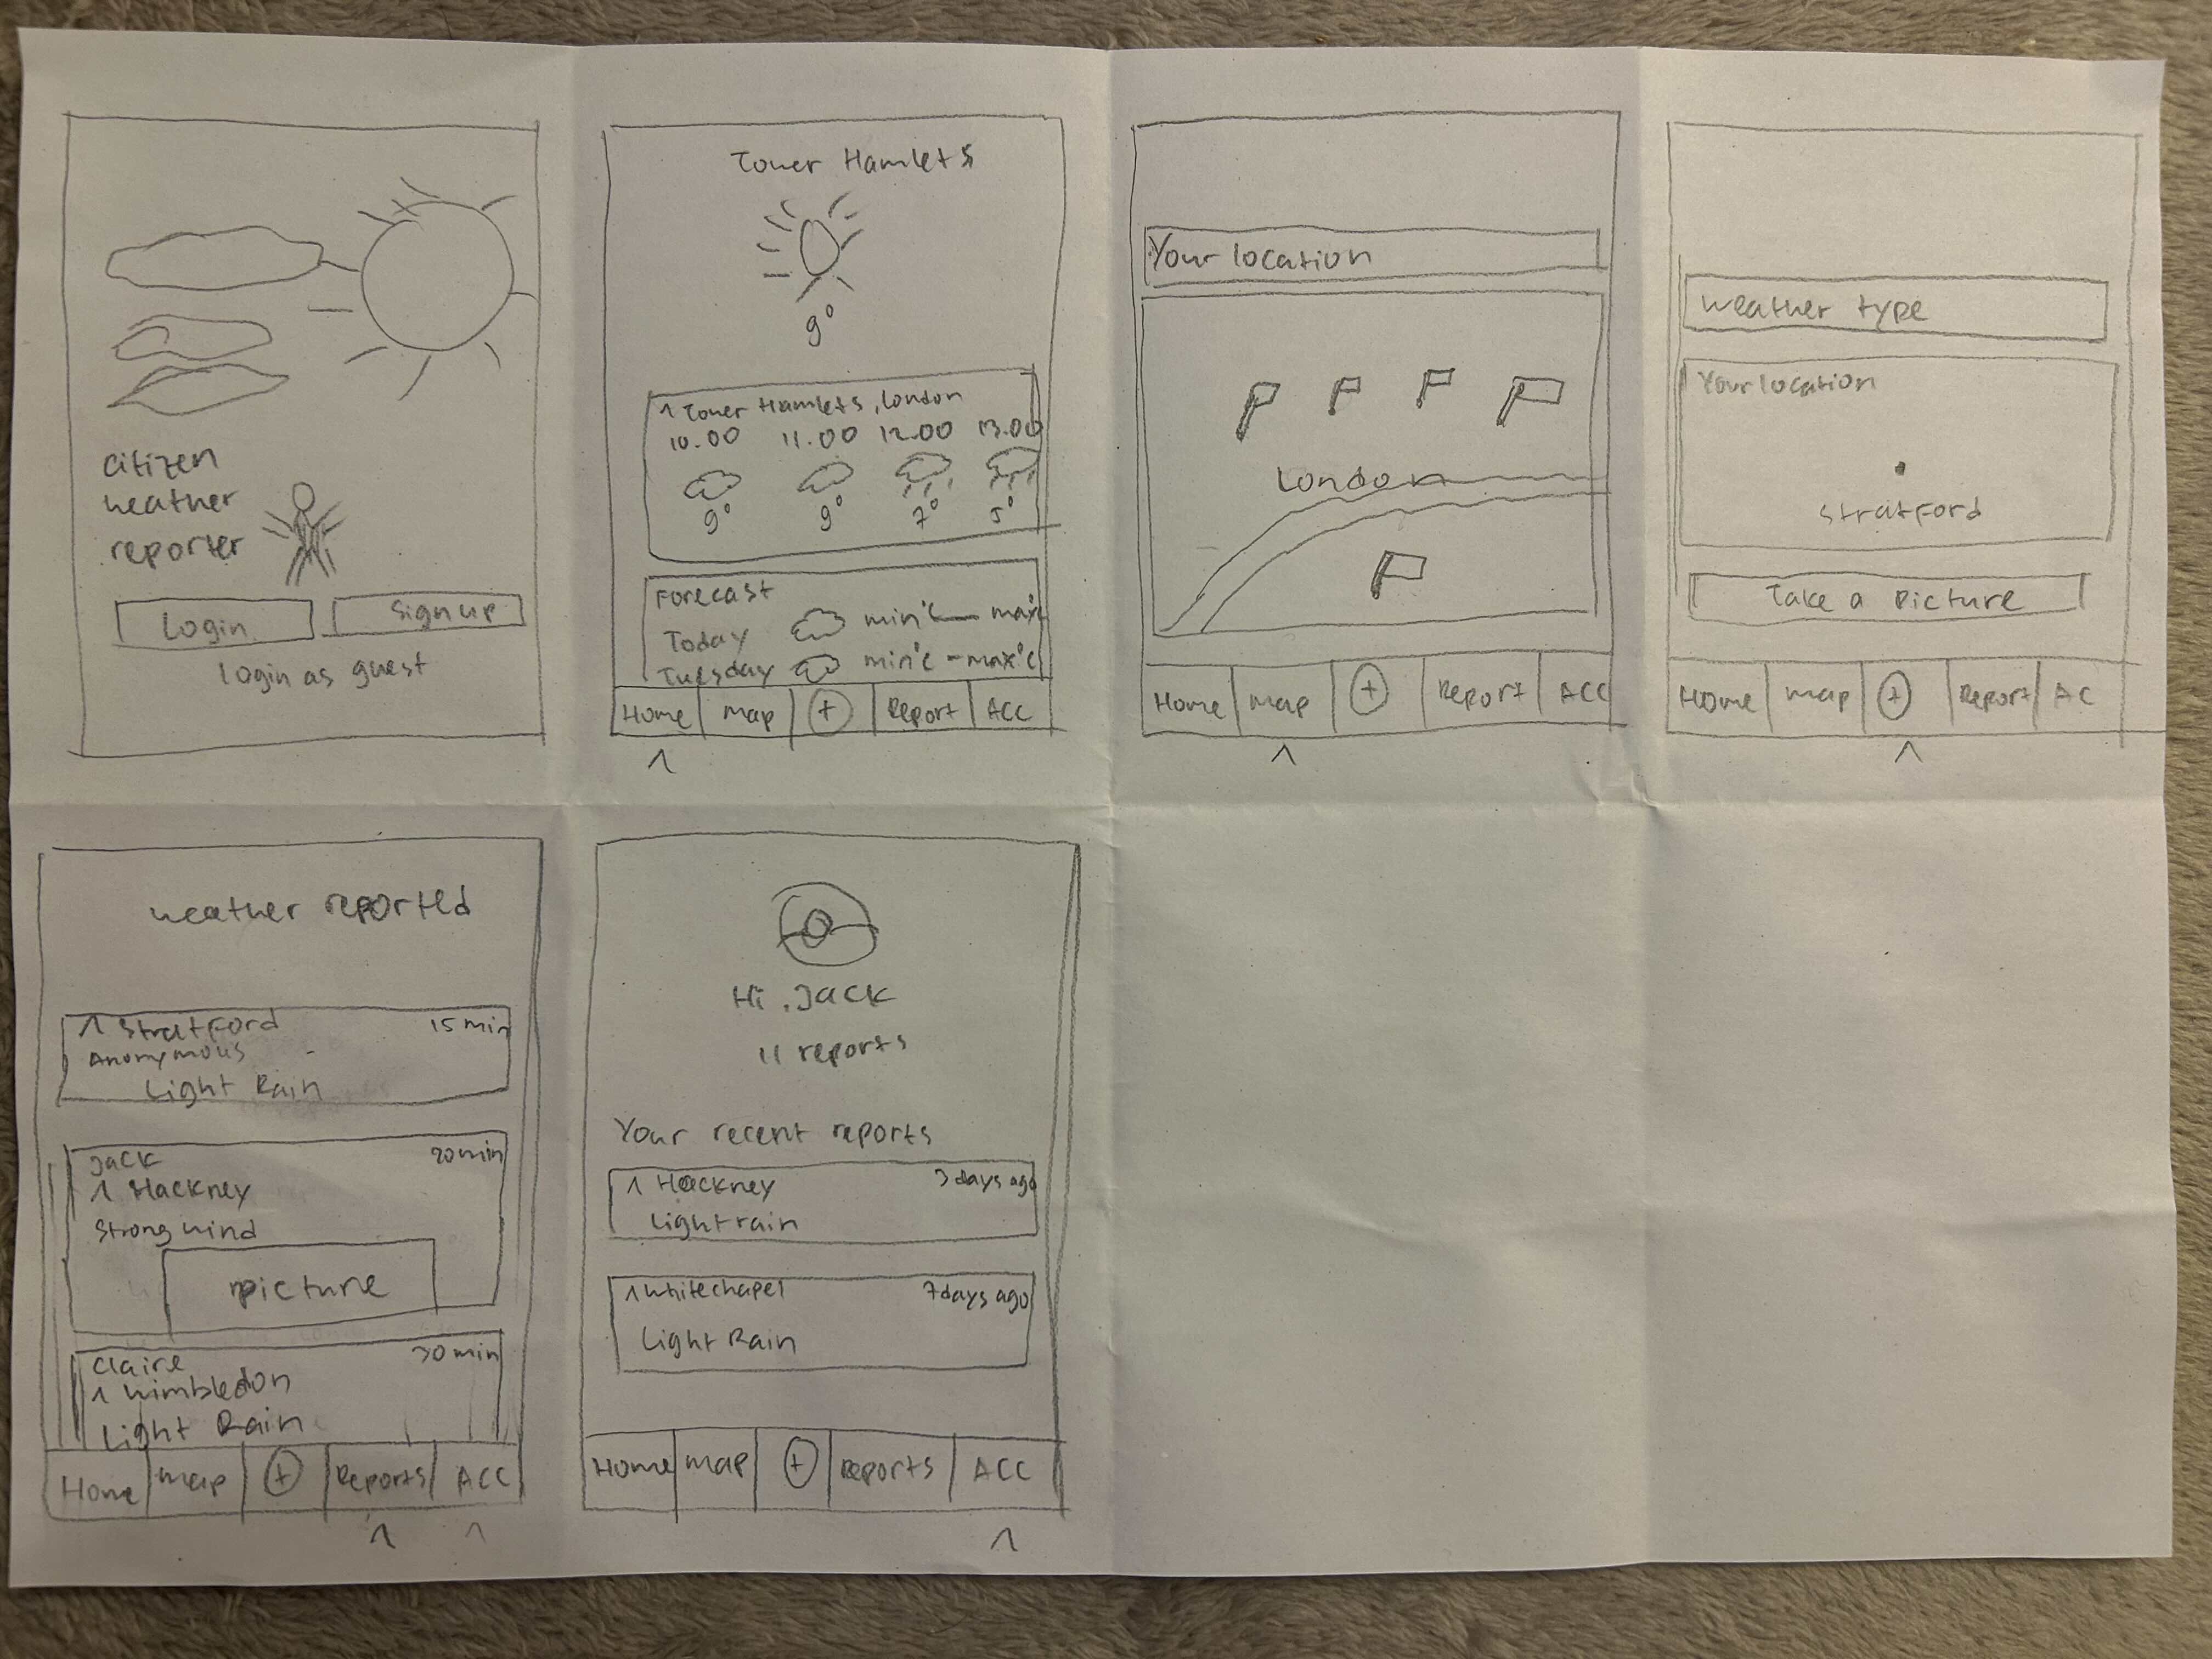 citizen
weather
reporter
Login
Sign up
login as guest
Tower Hamlets
9°
Tower Hamlets, London
10.00 11.00 12.00 13.00
9° 9° 7° 5°
Forecast
Today min°c — max°c
Tuesday min°c - max°c
Home map + Report ACC
Your location
London
Home map + Report ACC
weather type
Your location
Stratford
Take a picture
Home map + Report AC
weather reported
Stratford 15 min
Anonymous
Light Rain
Jack 20 min
Hackney
Strong wind
picture
Claire 30 min
wimbledon
Light Rain
Home map + Reports ACC
Hi, Jack
11 reports
Your recent reports
Hackney 3 days ago
Light rain
whitechapel 7 days ago
Light Rain
Home map + Reports ACC